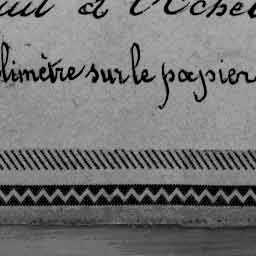 à l'Échel
limètre sur le papier